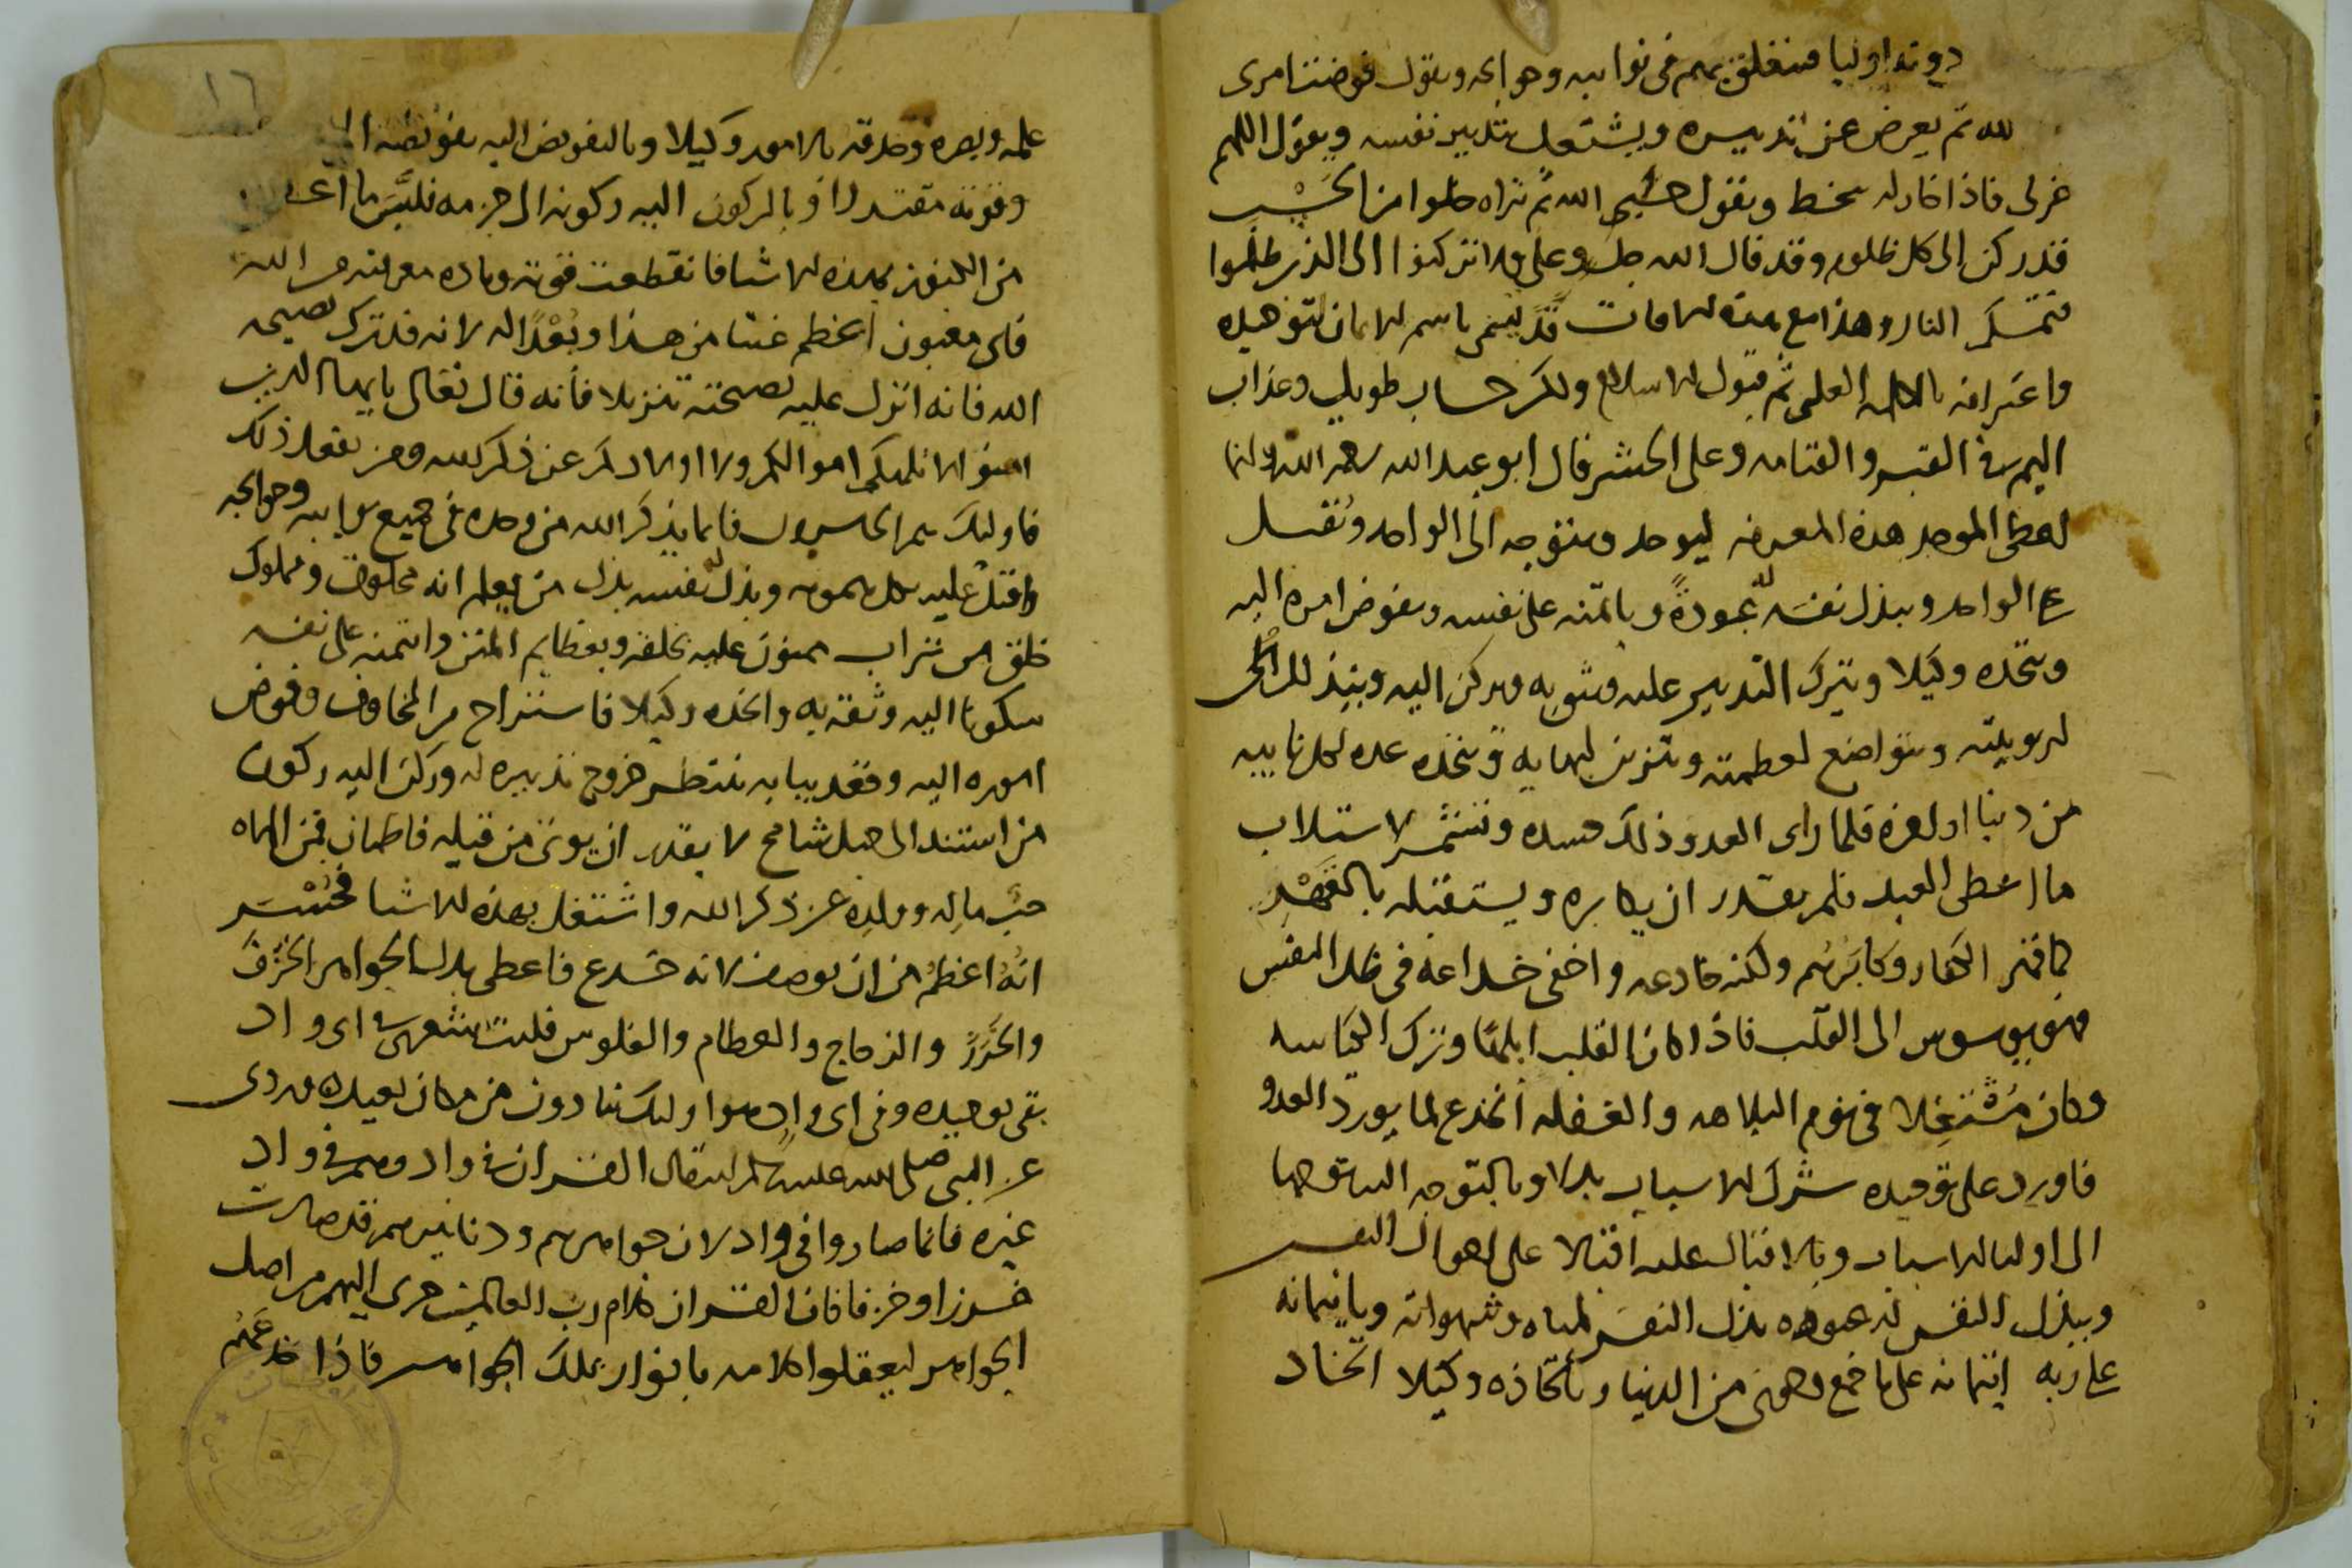 دونه اوليا فيتعلق بهم في نوايبه وحوايجه ويقول فوضت امري
لله ثم يعرض عن تدبيره ويشتغل بتدبير نفسه ويقول اللهم
خر لى فاذا خار له سخط ويقول حسبي الله ثم تراه خلوا من الحسب
قد ركن الى كل ظلوم وقد قال الله جل وعلى ولا تركنوا الى الذين ظلموا
فتمسكم النار وهذا مع هذه الافات قد يسمى باسم الايمان لتوحيده
واعترافه بالكلمه العليا ثم قبول الاسلام ولكن حساب طويل وعذاب
اليم في القبر والقيامه وعلى الجسر قال ابو عبد الله رحمه الله وانما
اعطى الموحد هذه المعرفه ليوحد ويتوجه الى الواحد ويقبل
على الواحد ويبذل نفسه له عبودة وياتمنه على نفسه ويفوض امره اليه
ويتخذه وكيلا ويترك التدبير عليه ويثق به ويركن اليه ويتذلل
لربوبيته ويتواضع لعظمته ويتزين لبهايه ويتخذه عده لكل نايبه
من دنيا او اخره فلما راى العدو ذلك حسده وتشمر لاستلاب
ما اعطى العبد فلم يقدر ان يكابره ويستقبله بالقهر
كما قهر الكفار وكابرهم ولكنه خادعه واخفى خداعه في ظل النفس
فهو يوسوس الى القلب فاذا كان القلب ابلها وترك الكياسه
وكان مشتغلا في نوم البلاهه والغفله انخدع لما يورد العدو
فاورد على توحيده شرك الاسباب بدلا وبالتوجه اليه توجها
الى اوليا الاسباب وبالاقبال عليه اقبالا على احوال النفس
وببذل النفس له عبوده بذل النفس لمناه وشهواته وبايتمانه
على ربه ايتمانه على ما جمع وحوى من الدنيا وباتخاذه وكيلا اتخاذ
١٦
علمه وبصره وحذقه بالامور وكيلا وبالتفويض اليه تفويضه الى
وقوته مقتدرا وبالركون اليه ركونه الى حزمه فلبس ما اعطى
من الكنوز بهذه الاشيا فانقطعت قوته وماده معونته من الله
فاى مغبون اعظم غبنا من هذا وبعدا له لانه قد ترك نصيحه
الله فانه انزل عليه نصيحته تنزيلا فانه قال تعالى يايها الذين
امنوا لا تلهكم اموالكم ولا اولادكم عن ذكر الله ومن يفعل ذلك
فاوليك هم الخاسرون فانما يذكر الله من وحده في جميع نوايبه وحوايجه
واقبل عليه بكل همومه وبذل له نفسه بذل من يعلم انه مخلوق ومملوك
خلق من تراب ممنون عليه بخلقه وبعظايم المنن وائتمنه على نفسه
سكونا اليه وثقة به واتخذه وكيلا فاستراح من المخاوف وفوض
اموره اليه وقعد ببابه ينتظر خروج تدبيره له وركن اليه ركون
من استند الى جبل شامخ لا يقدر ان يوتى من قبله فاطمان فمن الهاه
حب ماله وولده عن ذكر الله واشتغل بهذه الاشيا فخسر
انه اعظم من ان يوصف لانه خدع فاعطى بدل الجواهر الخزف
والخرز والزجاج والعظام والفلوس فليت شعرى في اى واد
بقى توحيده وفي اى واد هو اوليك ينادون من مكان بعيد روى
عن النبي صلى الله عليه وسلم انه قال القران في واد وهم في واد
غيره فانما صاروا في واد لان جواهرهم ودنانيرهم قد صارت
خرزا وخزفا فان القران كلام رب العالمين جرى اليهم من اصل
الجواهر ليعقلوا كلامه بانوار تلك الجواهر فاذا خدعهم